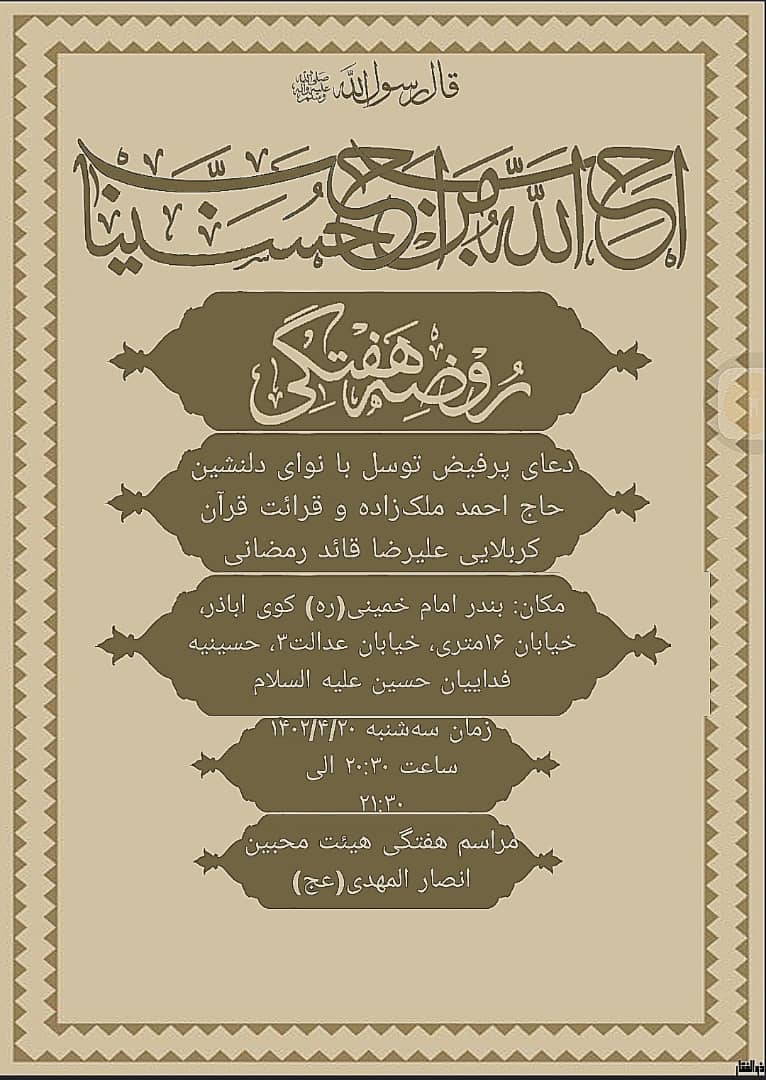 قال رسول الله صلی الله علیه وآله وسلم
احب الله من احب حسینا
روضه هفتگی
دعای پرفیض توسل با نوای دلنشین
حاج احمد ملک‌زاده و قرائت قرآن
کربلایی علیرضا قائد رمضانی
مکان: بندر امام خمینی(ره) کوی اباذر،
خیابان ۱۶متری، خیابان عدالت۳، حسینیه
فداییان حسین علیه السلام
زمان سه‌شنبه ۱۴۰۲/۴/۲۰
ساعت ۲۰:۳۰ الی
۲۱:۳۰
مراسم هفتگی هیئت محبین
انصار المهدی(عج)
ذوالفقار